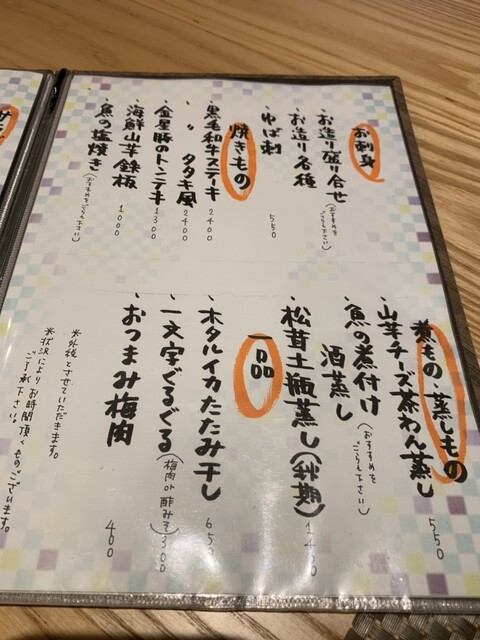 お刺身
・お造り盛り合せ(おすすめをごらん下さい)
・お造り各種
・ゆば刺 550
焼きもの
・黒毛和牛ステーキ 2400
・〃 タタキ風 2400
・金星豚のトンテキ 1300
・海鮮山芋鉄板 1000
・魚の塩焼き(おすすめをごらん下さい)
煮もの・蒸しもの
・山芋チーズ茶わん蒸し 550
・魚の煮付け(おすすめをごらん下さい)
酒蒸し
・松茸土瓶蒸し(秋期)
一品
・ホタルイカたたみ干し 650
・一文字ぐるぐる(梅肉or酢みそ) 300
・おつまみ梅肉 400
※外税とさせていただきます。
※状況によりお時間頂くものございます。
ご了承下さい。